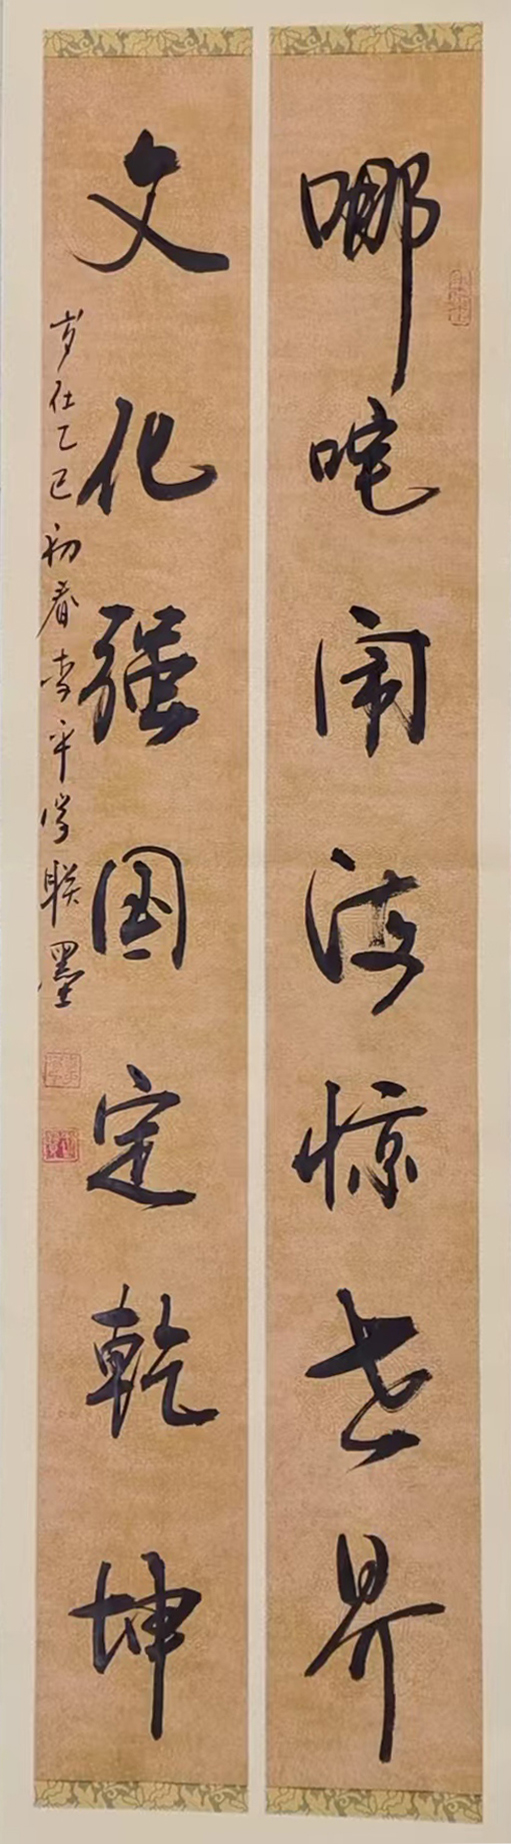 哪吒闹海惊世界
文化强国定乾坤
岁在乙巳初春李平学联墨